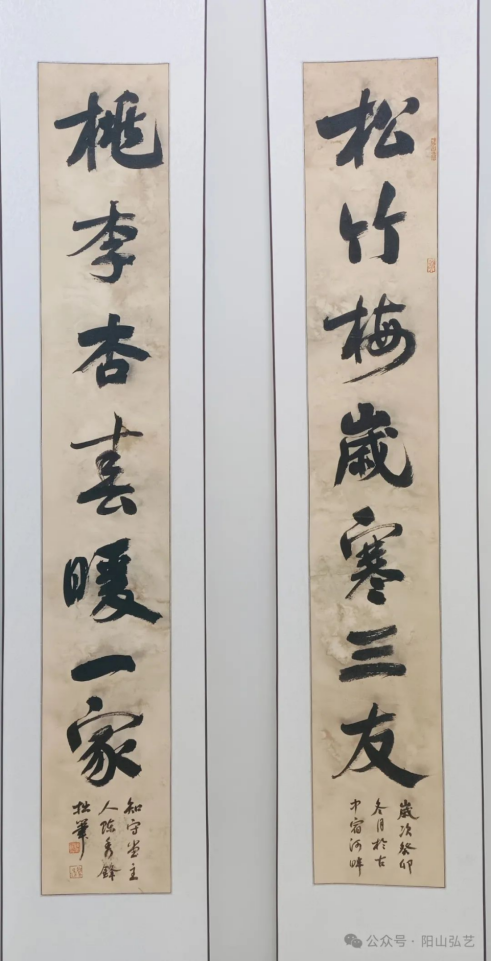 松竹梅歲寒三友
歲次癸卯
冬月於古
中宿河畔
桃李杏春暖一家
知守堂主
人陈秀锋
拙筆
公众号·阳山弘艺